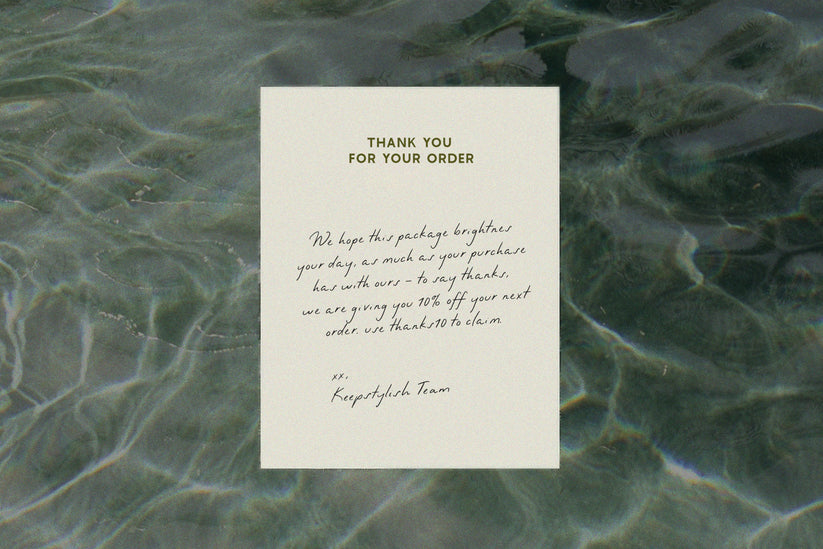 THANK YOU
FOR YOUR ORDER
We hope this package brightnes
your day, as much as your purchase
has with ours – to say thanks,
we are giving you 10% off your next
order. use thanks10 to claim.
xx,
Keepstylish Team